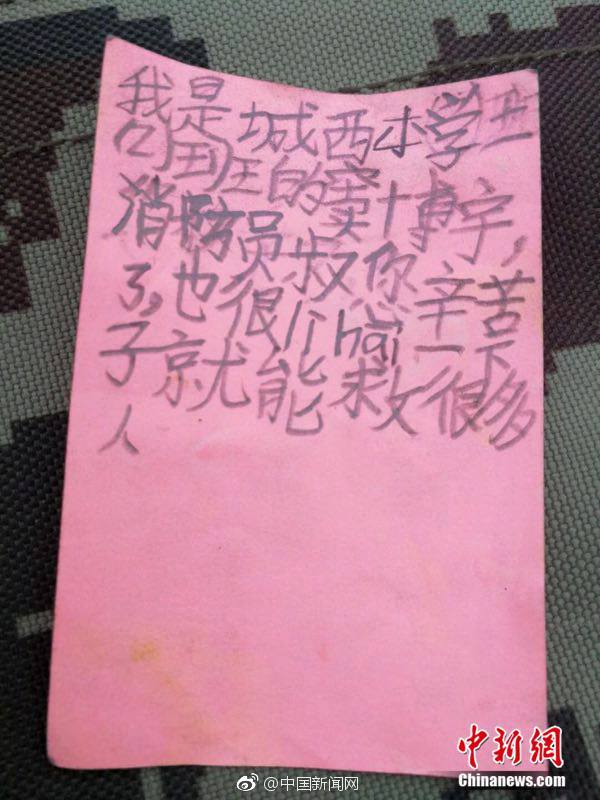 我是城西小学一
(1)班的窦博宇,
消防员叔你辛苦
了,也很hai一下
子就能救很多
人
中新網
Chinanews.com
@中国新闻网